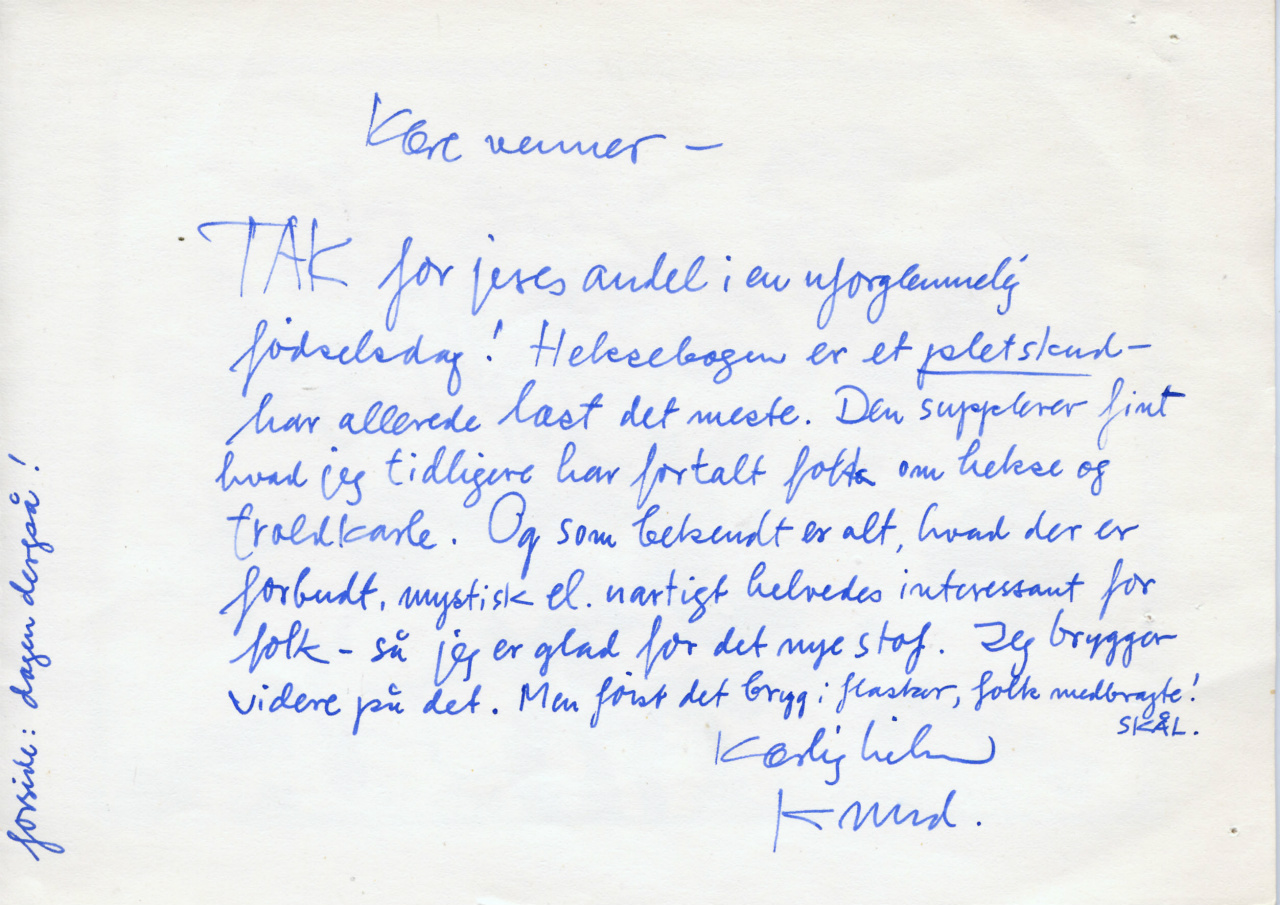 Kære venner –
TAK for jeres andel i en uforglemmelig
födselsdag! Heksebogen er et pletskud –
har allerede læst det meste. Den supplerer fint
hvad jeg tidligere har fortalt folk om hekse og
troldkarle. Og som bekendt er alt, hvad der er
forbudt, mystisk el. uartigt helvedes interessant for
folk – så jeg er glad for det nye stof. Jeg brygger
videre på det. Men först det bryg i flasker, folk medbragte!
SKÅL.
Kærlig hilsen
Knud.
forside: dagen derpå!